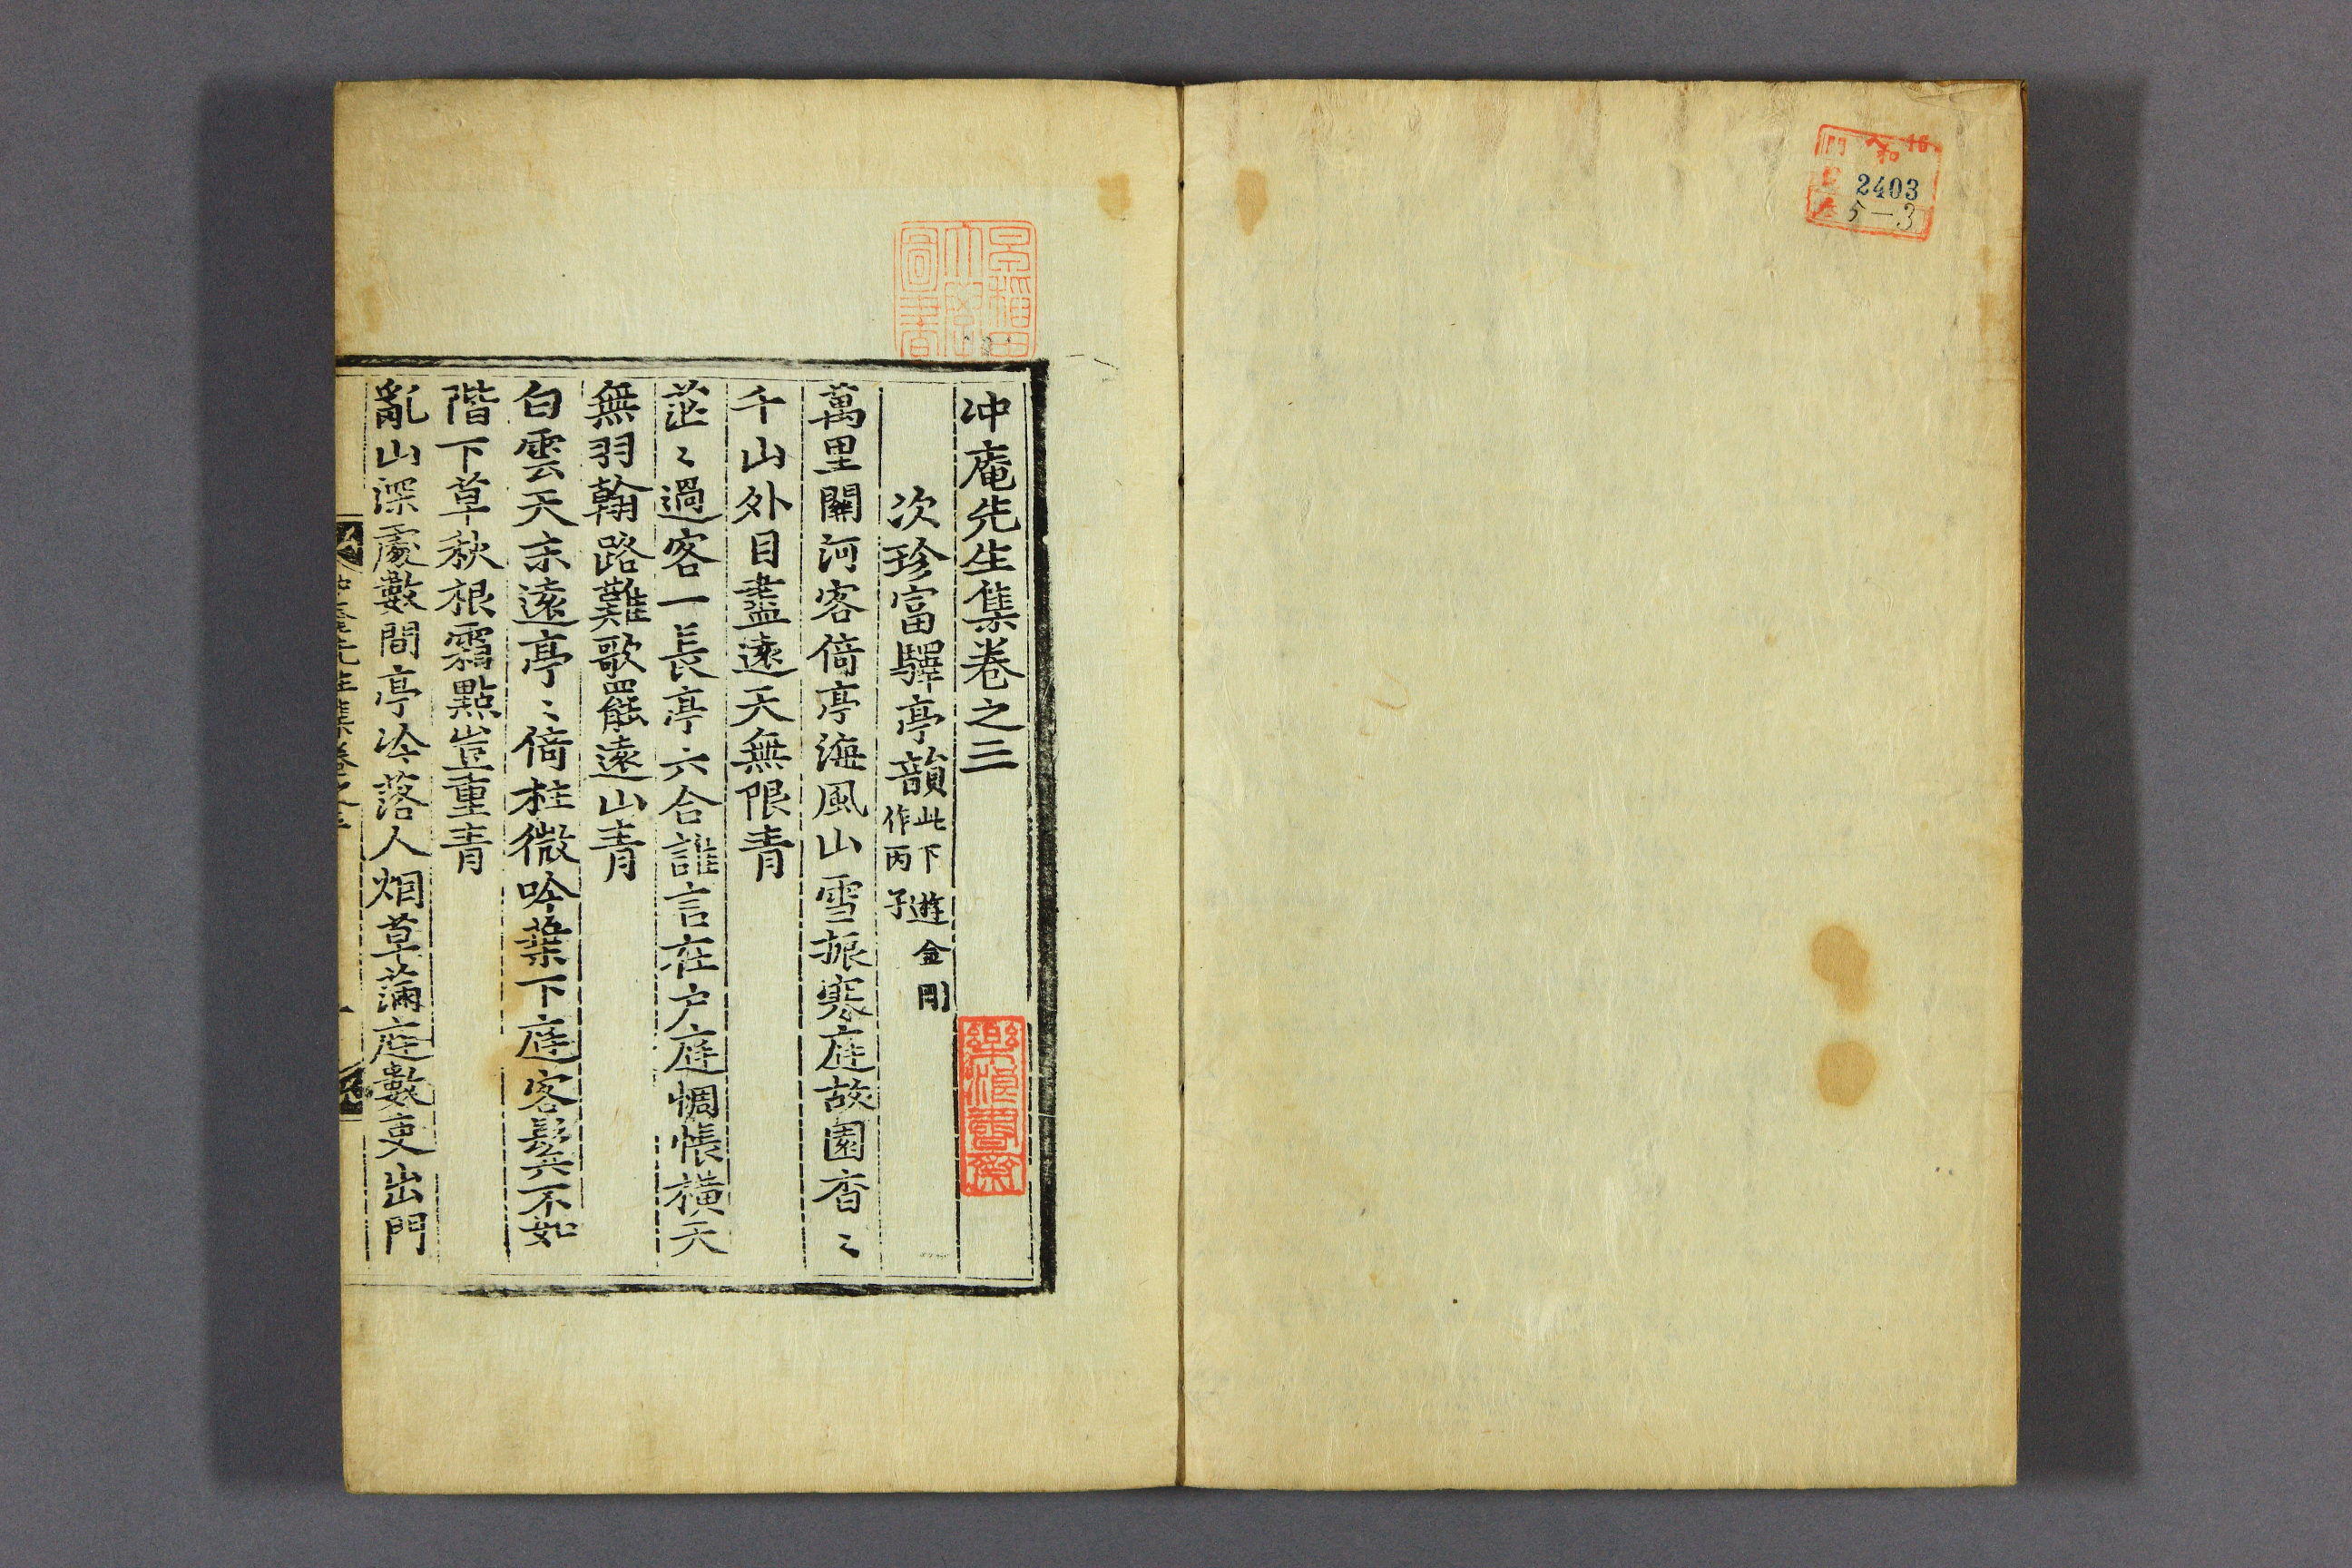 門 イ和 16
2403
5-3
早稲田
大學
圖書
冲庵先生集卷之三
次珍富驛亭韻此下遊金剛
作丙子
萬里關河客倚亭海風山雪振寒庭故園杳〻
千山外目盡遠天無限青
茫〻過客一長亭六合誰言在户庭惆悵橫天
無羽翰路難歌罷遠山青
白雲天末遠亭〻倚柱微吟葉下庭客鬂不如
階下草秋根霜點豈重青
亂山深處數間亭冷落人烟草滿庭數吏出門
冲庵先生集卷之三
樂浪書齋